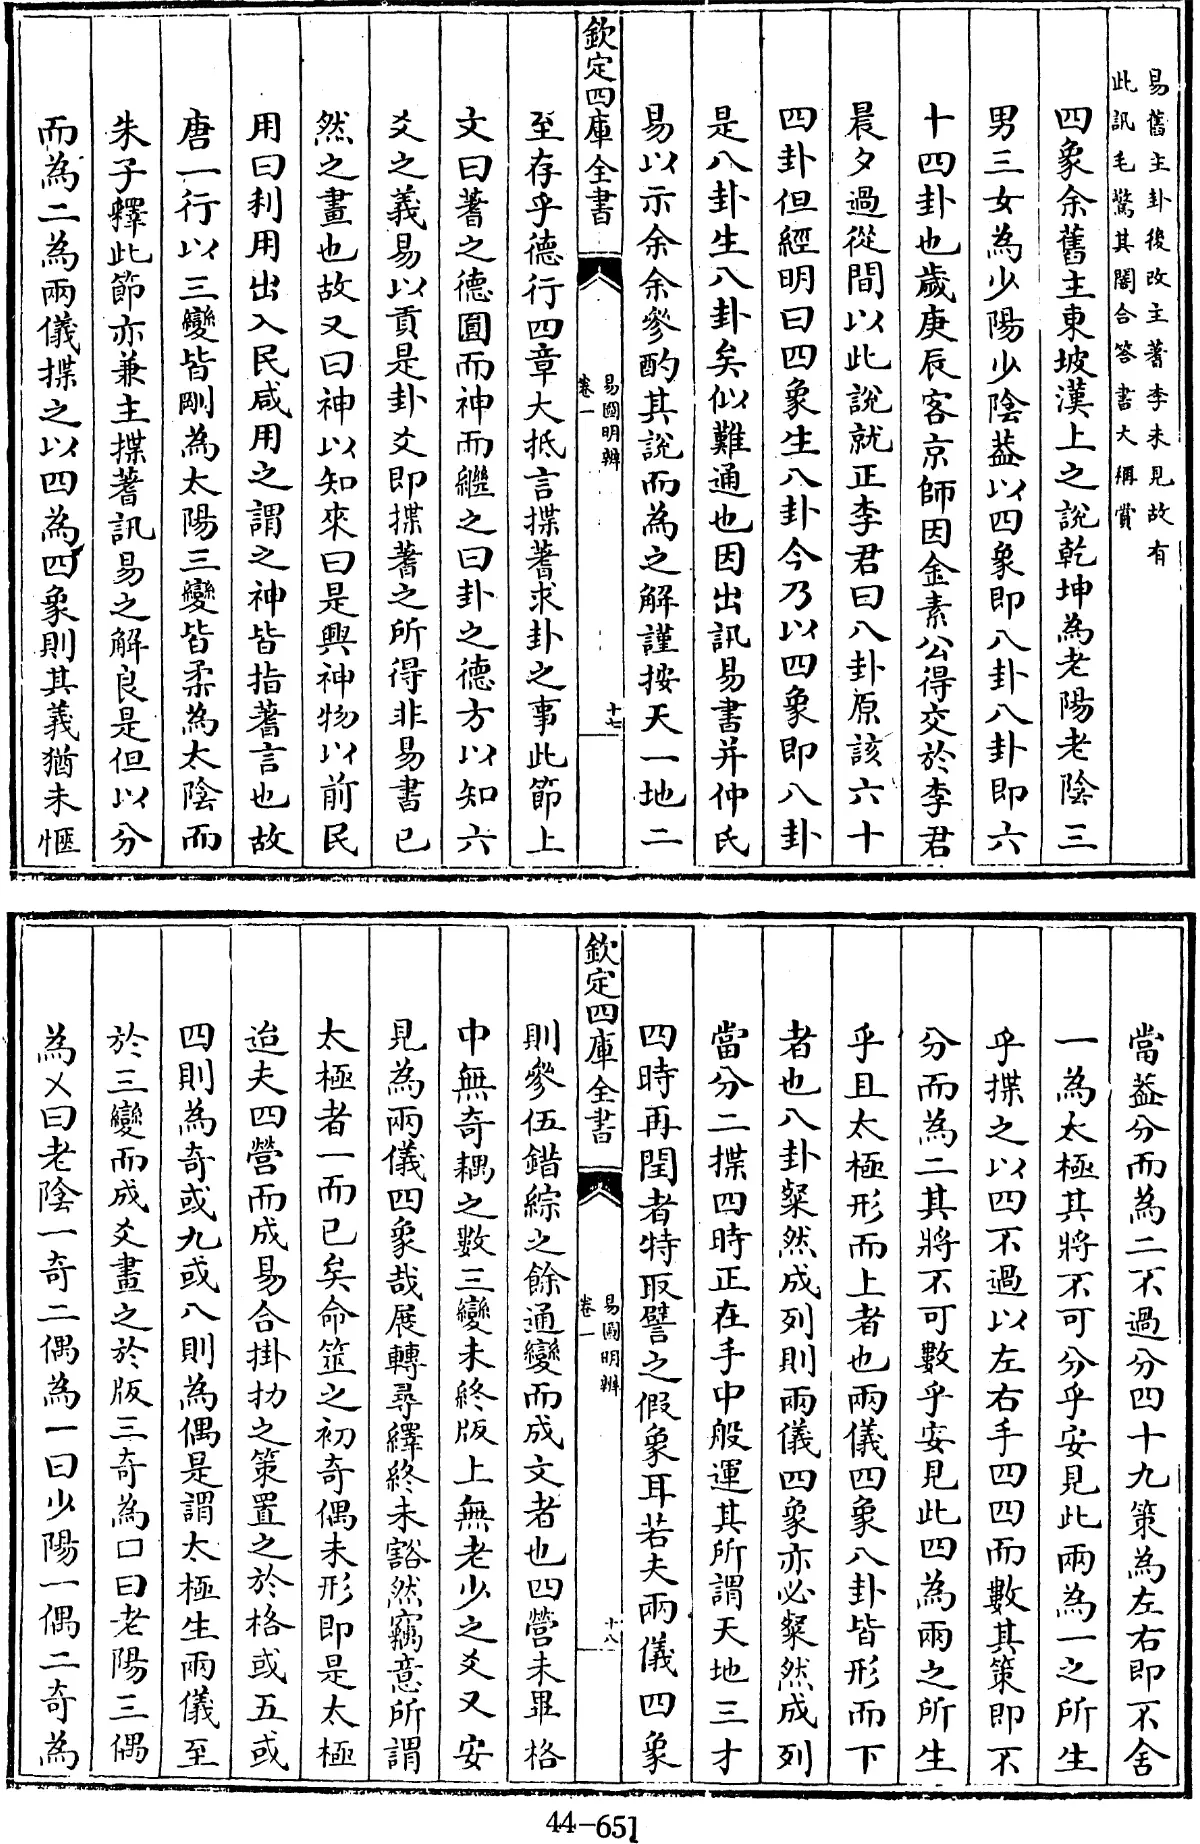 易舊主卦後改主蓍李未見故有
此訊毛驚其闇合答書大稱賞
四象余舊主東坡漢上之說乾坤為老陽老陰三
男三女為少陽少陰葢以四象即八卦八卦即六
十四卦也歲庚辰客京師因金素公得交於李君
晨夕過從間以此說就正李君曰八卦原該六十
四卦但經明曰四象生八卦今乃以四象即八卦
是八卦生八卦矣似難通也因出訊易書并仲氏
易以示余余參酌其說而為之解謹按天一地二
欽定四庫全書
易圖明辨
卷一
十七
至存乎德行四章大抵言揲蓍求卦之事此節上
文曰蓍之德圓而神而繼之曰卦之德方以知六
爻之義易以貢是卦爻即揲蓍之所得非易書已
然之畫也故又曰神以知來曰是興神物以前民
用曰利用出入民咸用之謂之神皆指蓍言也故
唐一行以三變皆剛為太陽三變皆柔為太陰而
朱子釋此節亦兼主揲蓍訊易之解良是但以分
而為二為兩儀揲之以四為四象則其義猶未愜
當葢分而為二不過分四十九策為左右即不舍
一為太極其將不可分乎安見此兩為一之所生
乎揲之以四不過以左右手四四而數其策即不
分而為二其將不可數乎安見此四為兩之所生
乎且太極形而上者也兩儀四象八卦皆形而下
者也八卦粲然成列則兩儀四象亦必粲然成列
當分二揲四時正在手中般運其所謂天地三才
四時再閏者特取譬之假象耳若夫兩儀四象
欽定四庫全書
易圖明辨
卷一
十八
則參伍錯綜之餘通變而成文者也四營未畢格
中無奇耦之數三變未終版上無老少之爻又安
見為兩儀四象哉展轉尋繹終未豁然竊意所謂
太極者一而已矣命筮之初奇偶未形即是太極
迨夫四營而成易合掛扐之策置之於格或五或
四則為奇或九或八則為偶是謂太極生兩儀至
於三變而成爻畫之於版三奇為口曰老陽三偶
為乂曰老陰一奇二偶為一曰少陽一偶二奇為
44-651